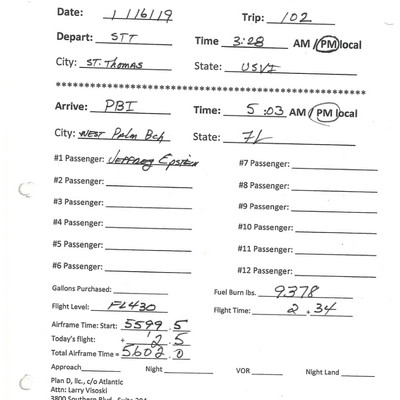 Date: 1/16/19 Trip: 102
Depart: STT Time 3:28 AM / PM local
City: ST. Thomas State: USVI
************************************************************
Arrive: PBI Time: 5:03 AM / PM local
City: WEST Palm Bch State: FL
#1 Passenger: Jeffrey Epstein #7 Passenger:
#2 Passenger: #8 Passenger:
#3 Passenger: #9 Passenger:
#4 Passenger: #10 Passenger:
#5 Passenger: #11 Passenger:
#6 Passenger: #12 Passenger:
Gallons Purchased: Fuel Burn lbs. 9,378
Flight Level: FL430 Flight Time: 2.34
Airframe Time: Start: 5599.5
Today's flight: + 2.5
Total Airframe Time = 5602.0
Approach Night VOR Night Land
Plan D, llc., c/o Atlantic
Attn: Larry Visoski
3800 Southern Blvd., Suite 204